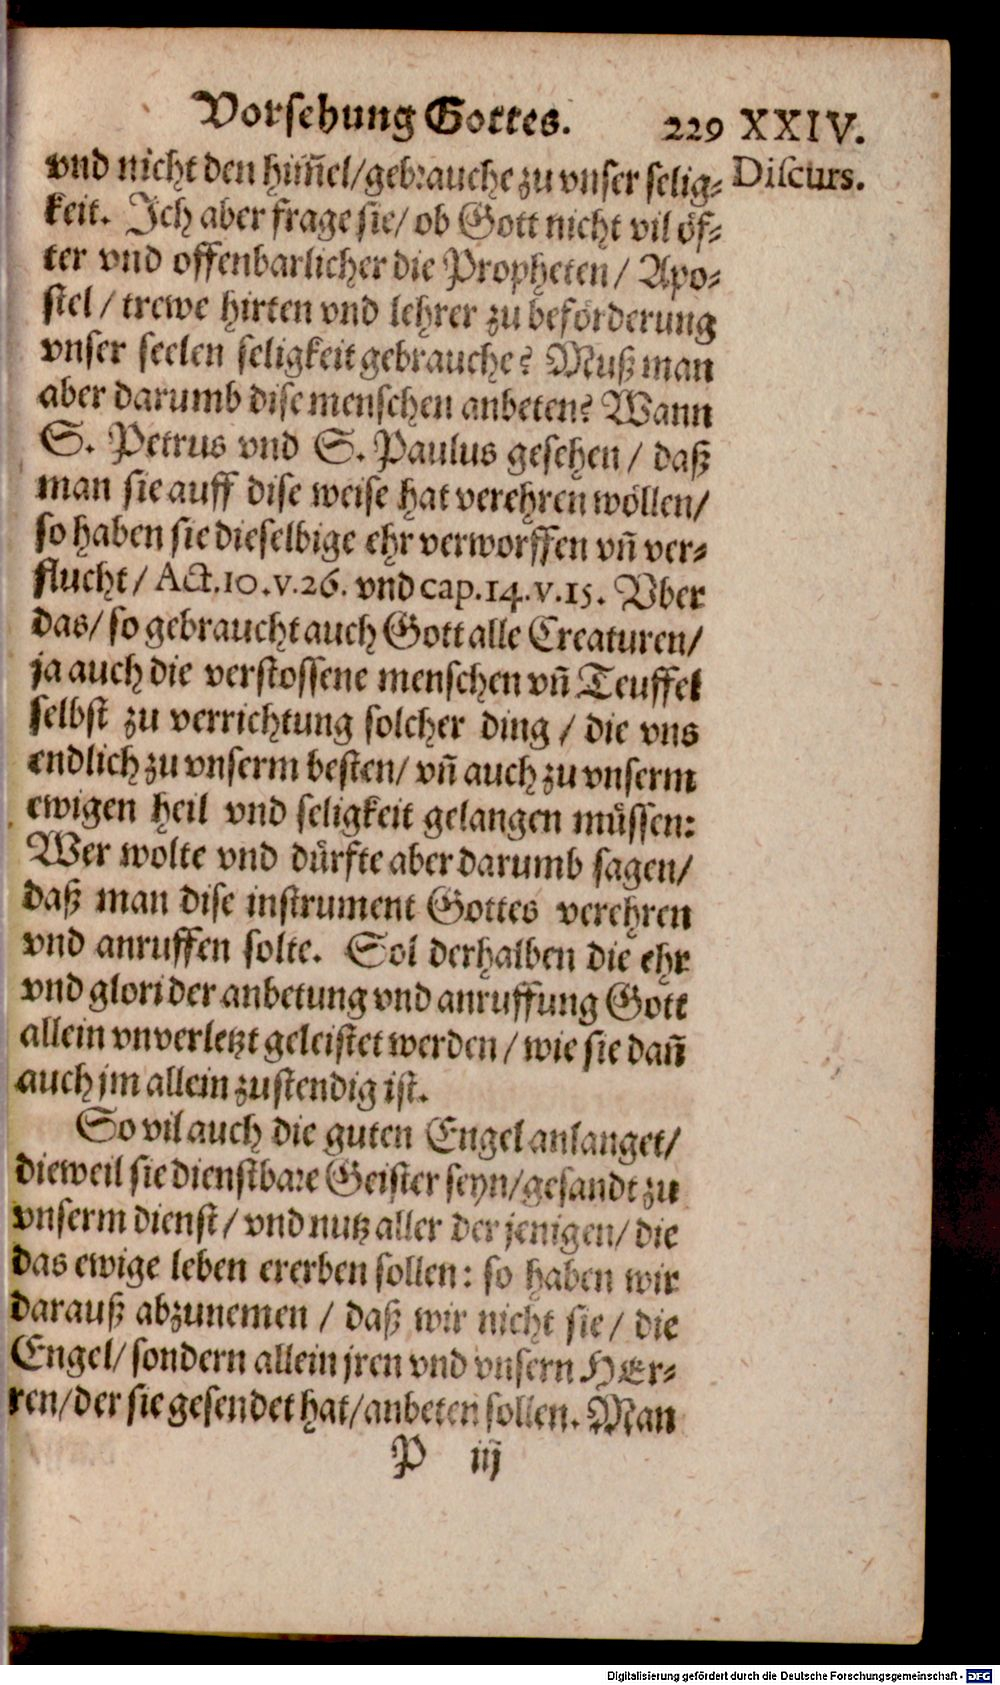 Vorsehung Gottes. 229 XXIV.
vnd nicht den him̃el/gebrauche zu vnser selig- Discurs.
keit. Ich aber frage sie/ ob Gott nicht vil öf-
ter vnd offenbarlicher die Propheten/ Apo-
stel/ trewe hirten vnd lehrer zu beförderung
vnser seelen seligkeit gebrauche? Muß man
aber darumb dise menschen anbeten? Wann
S. Petrus vnd S. Paulus gesehen/ daß
man sie auff dise weise hat verehren wöllen/
so haben sie dieselbige ehr verworffen vñ ver-
flucht/ Act.10.v.26. vnd cap.14.v.15. Vber
das/ so gebraucht auch Gott alle Creaturen/
ja auch die verstossene menschen vñ Teuffel
selbst zu verrichtung solcher ding/ die vns
endlich zu vnserm besten/ vñ auch zu vnserm
ewigen heil vnd seligkeit gelangen müssen:
Wer wolte vnd dürfte aber darumb sagen/
daß man dise instrument Gottes verehren
vnd anruffen solte. Sol derhalben die ehr
vnd glori der anbetung vnd anruffung Gott
allein vnverletzt geleistet werden/ wie sie dañ
auch jm allein zustendig ist.
So vil auch die guten Engel anlanget/
dieweil sie dienstbare Geister seyn/gesandt zu
vnserm dienst/ vnd nutz aller der jenigen/ die
das ewige leben ererben sollen: so haben wir
darauß abzunemen/ daß wir nicht sie/ die
Engel/ sondern allein jren vnd vnsern HEr-
ren/der sie gesendet hat/anbeten sollen. Man
P iij
Digitalisierung gefördert durch die Deutsche Forschungsgemeinschaft - DFG